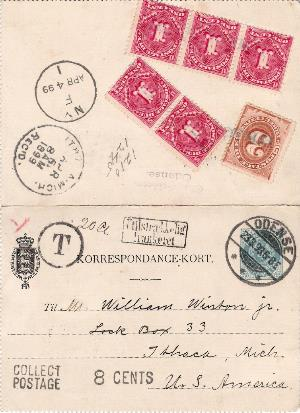 N.Y.
APR 4 99
1
MICH.
APR
8 AM
1899
REC'D.
Odense
20 Ct
T
Utilstrækkelig
frankeret
ODENSE
KORRESPONDANCE-KORT.
Til Mr. William Winton jr.
Lock Box 33
Ithaca, Mich.
U. S. America.
COLLECT
POSTAGE
8 CENTS